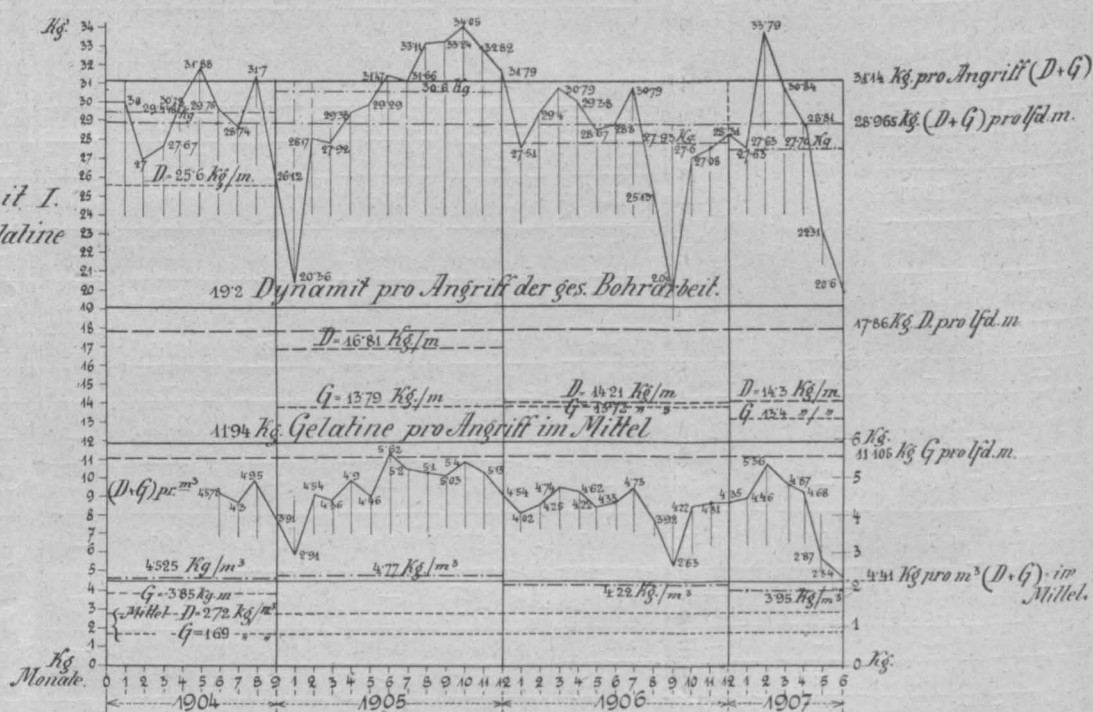 Kg.
34
33
32
31
30
29
28
27
26
25
24
23
22
21
20
19
18
17
16
15
14
13
12
11
10
9
8
7
6
5
4
3
2
1
0
Kg
31·88
31·7
27
27·67
29·75
28·74
D=25·6 Kg/m.
26·12
20·36
28·17
27·92
29·38
29·29
31·47
31·66
30·6 Kg
33·24
34·05
32·82
31·79
27·51
29·4
30·79
29·38
28·67
28·8
30·79
25·13
27·6
27·08
27·63
33·79
27·63
30·84
27·76 Kg
28·81
22·31
20·6
31·14 Kg. pro Angriff (D+G)
28·965 kg. (D+G) pro lfd. m.
it I.
latine
19·2 Dynamit pro Angriff der ges. Bohrarbeit.
17·86 Kg. D. pro lfd. m
D=16·81 Kg/m
G=13·79 Kg/m
D=14·21 Kg/m
D=14·3 Kg/m.
G. 13·4 " / "
11·94 Kg. Gelatine pro Angriff im Mittel
6 Kg.
11·105 Kg G pro lfd. m.
(D+G) pr. m³
4·578
4·3
4·95
3·91
2·91
4·54
4·56
4·9
4·46
5·62
5·2
5·1
5·03
5·4
5·13
4·54
4·02
4·25
4·74
4·22
4·62
4·33
4·73
3·92
2·63
4·22
4·31
4·35
4·46
5·36
4·87
4·68
2·87
2·34
5
4
3
2
1
0 Kg.
4·525 Kg/m³
4·77 Kg/m³
4·22 Kg/m³
3·95 Kg/m³
4·41 Kg pro m³ (D+G) im
Mittel.
G=3·85 kg. m
Mittel D=2·72 kg/m³
G=1·69 " "
Monate. 0 1 2 3 4 5 6 7 8 9 1 2 3 4 5 6 7 8 9 10 11 12 1 2 3 4 5 6 7 8 9 10 11 12 1 2 3 4 5 6
1904 1905 1906 1907